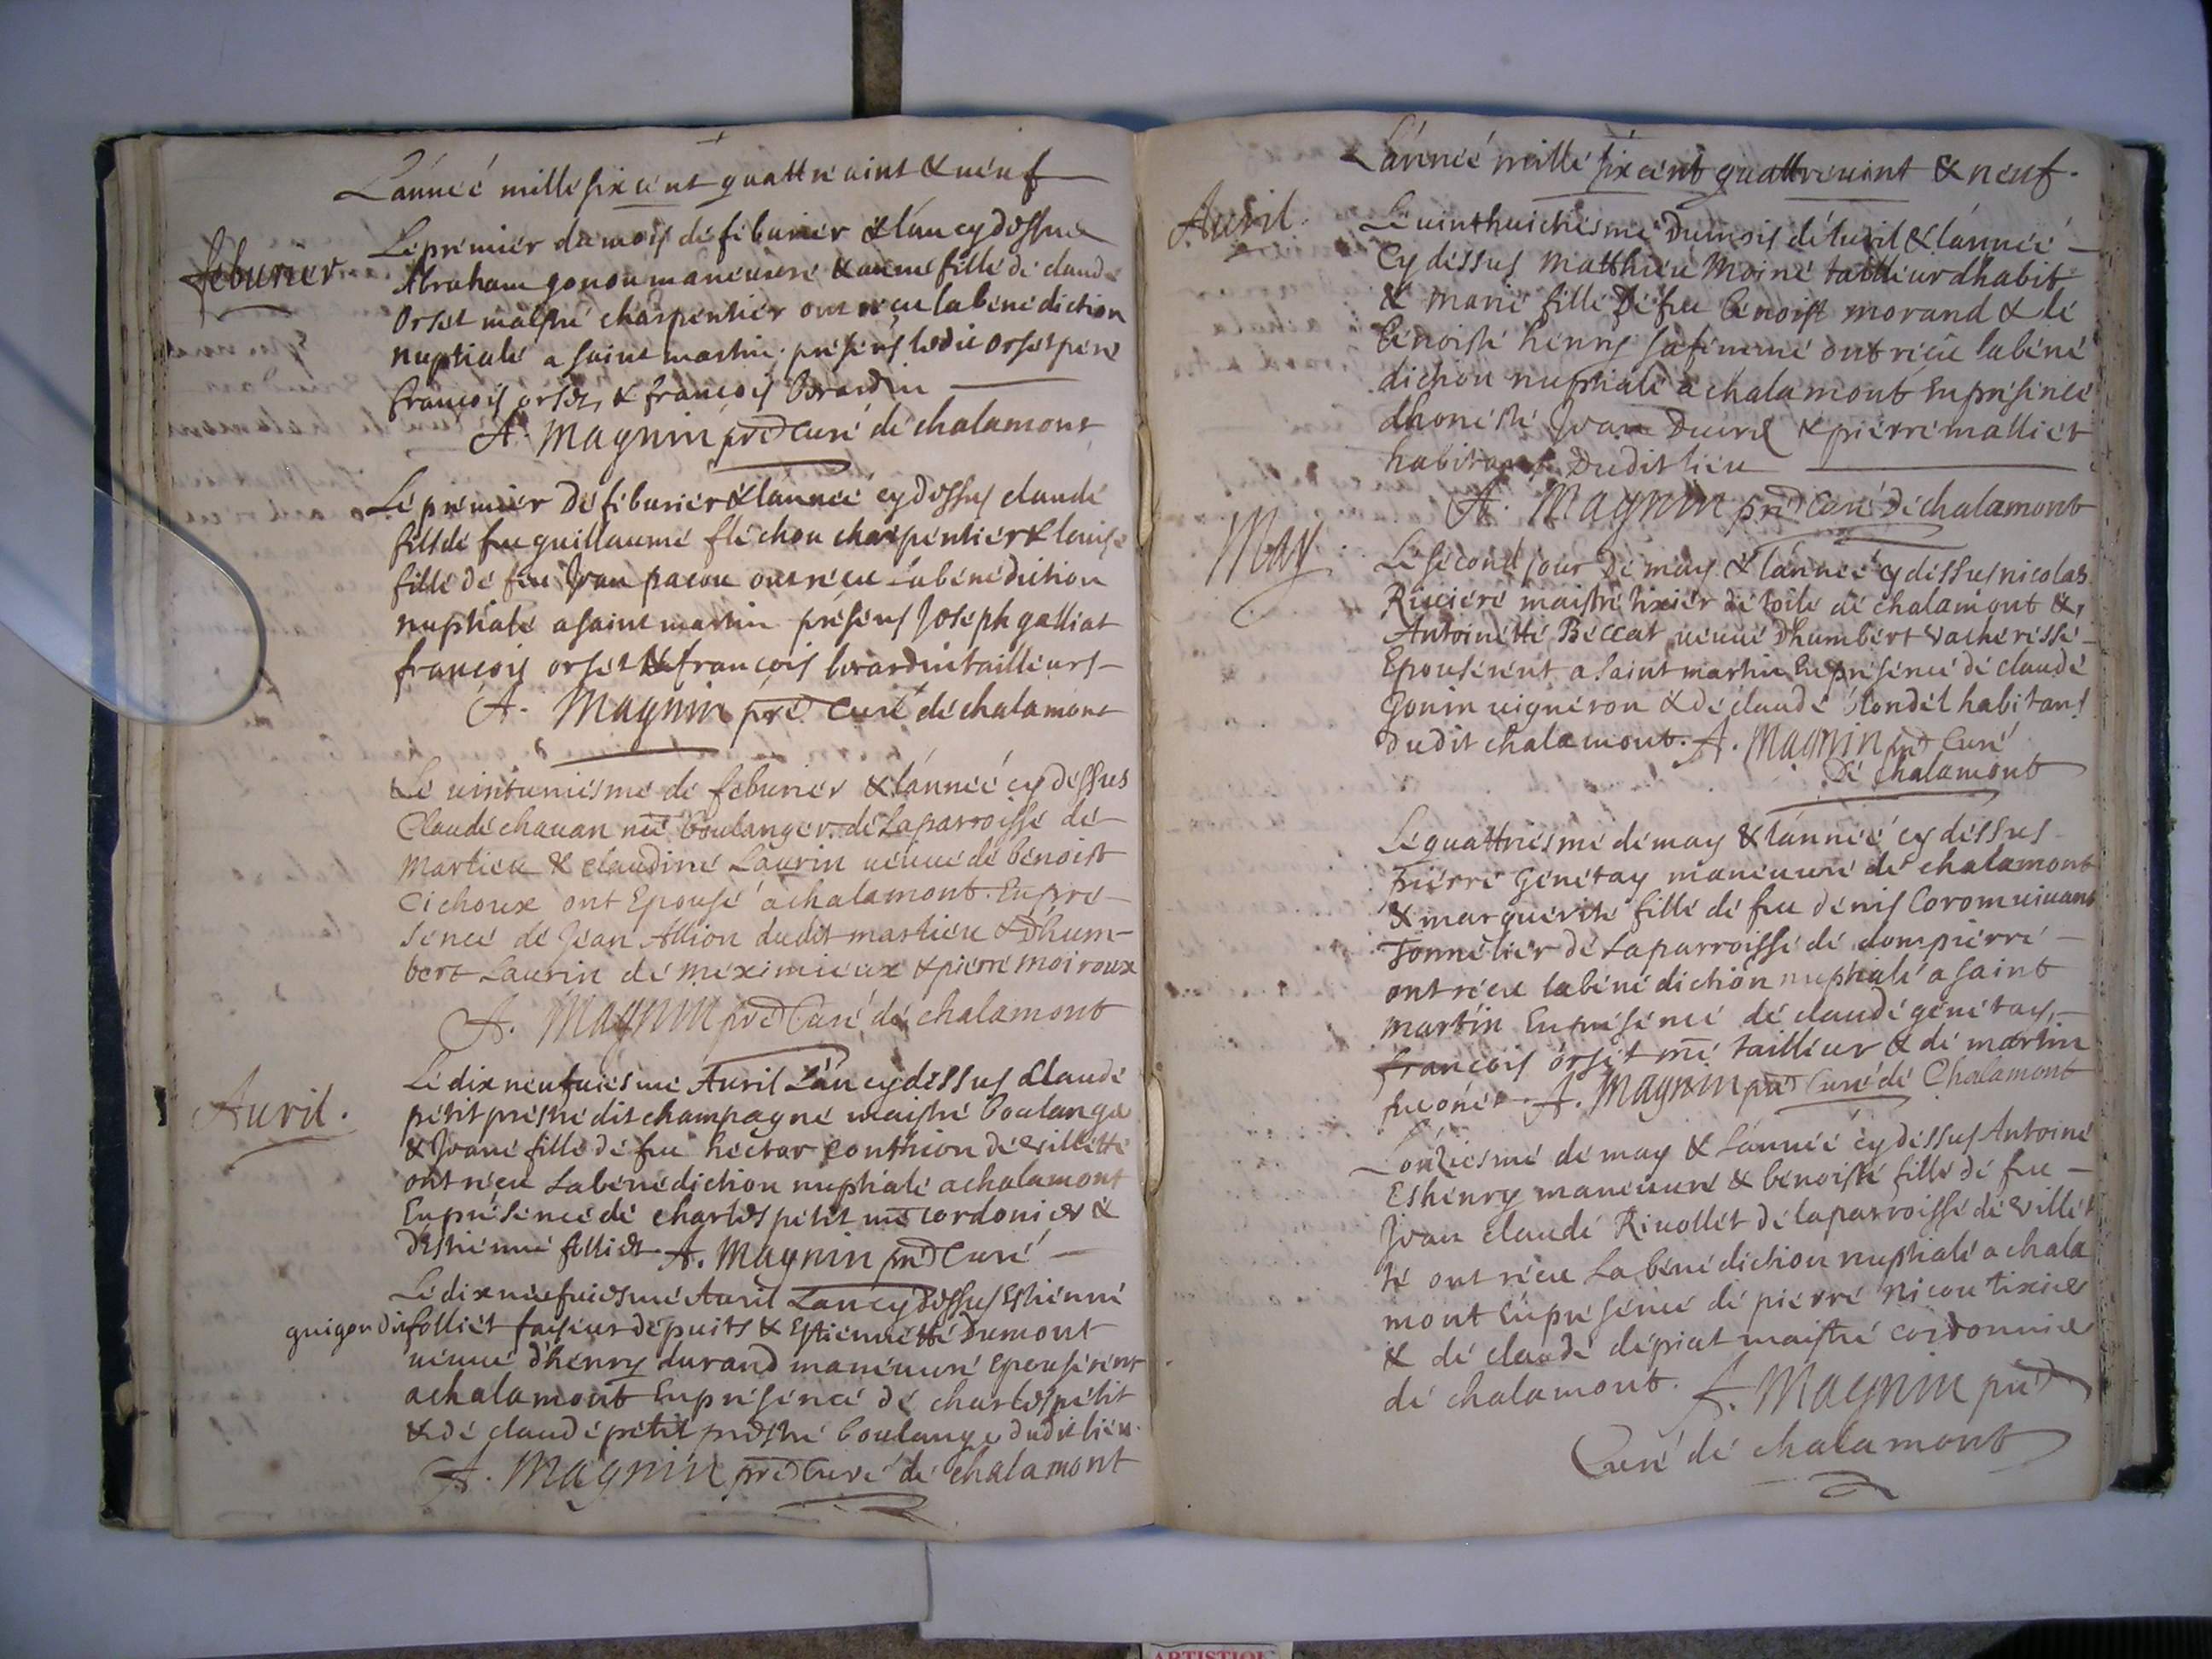 L'année mille six cent quattrevint & neuf
feburier
Le premier du mois de feburier & l'an cy dessus
Abraham gonon maneuure & anne fille de claude
Orset maistre charpentier ont receu la benediction
nuptiale a saint martin presens ledit Orset pere
françois orset, & françois berardin
A. Magnin pre curé de chalamont
Le premier de feburier & lannee cy dessus claude
fils de feu guillaume fléchon charpentier & louise
fille de feu Jean pacou ont receu la benediction
nuptiale a saint martin presens Joseph galliat
françois orset & françois berardin tailleurs
A. Magnin pre curé de chalamont
Le vintuniesme de feburier & l'année cy dessus
Claude chauan me boulanger de la parroisse de
Martieu & claudine Laurin ueuue de benoist
Cichoux ont Epousé a chalamont. En pre
sence de Jean Allion dudit martieu & d'hum
bert Laurin de meximieux & pierre moiroux
A. Magnin pre Curé de chalamont
Auril.
Le dix neufuiesme Auril L'an cy dessus Claude
petit prestre dit champagne maistre boulange
& Jeane fille de feu hector conthion de villette
ont receu La benediction nuptiale a chalamont
En presence de charles petit me cordonier &
d'estienne folliet A. Magnin pre Curé
Le dix neufuiesme Auril L'an cy dessus Estienne
guigon dit folliet faiseur de puits & Estiennette Dumont
ueuue d'henry durand maneuure epouserent
a chalamont En presence de charles petit
& de claude petit prestre boulange dudit lieu.
A. Magnin pre Curé de chalamont
L'année mille six cent quattreuint & neuf.
Auril.
Le uinthuictiesme Du mois d'Auril & l'année
Cy dessus Matthieu Moine tailleur dhabit
& marie fille De feu benoist morand & de
benoiste henry sa femme ont receu la bene
diction nuptiale a chalamont En presence
dhoneste Jean & pierre malliet
habitans Dudit lieu
A. Magnin pre Curé De chalamont
May.
Le second jour De may & l'année cy dessus nicolas
Riuiere maistre tixier de toile de chalamont &
Antoinette Beccat ueuue D'humbert vacheresse
Epouserent a saint martin En presence de claude
Gonin uigneron & de claude blondel habitans
dudit chalamont. A. Magnin pre Curé
De chalamont
Le quattriesme de may & l'année cy dessus
pierre Genetay maneuure de chalamont
& marguerite fille de feu denis Corom uiuant
Tonnelier de La parroisse de dompierre
ont receu la benediction nuptiale a saint
martin En presence de claude genetay,
françois orset me tailleur & de martin
A. Magnin pre Curé de Chalamont
L'onziesme de may & L'année cy dessus Antoine
Eshenry maneuure & benoiste fille de feu
Jean claude Riuollet de la parroisse de villet
te ont receu La benediction nuptiale a chala
mont En presence de pierre nicou tixier
& de claude depriat maistre cordonnier
de chalamont. A. Magnin pre
Curé de chalamont
ARTISTIQUE